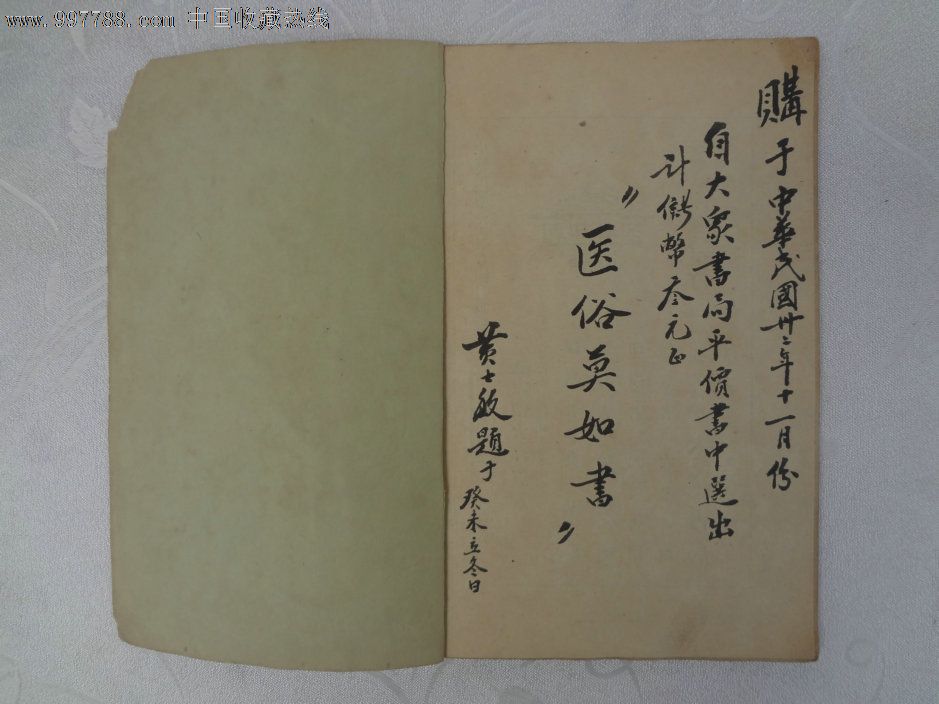 www.997788.com 中国收藏热线
購于中華民國卅二年十一月份
自大衆書局平價書中選出
計儲幣叁元正
〃医俗莫如書〃
黄士敏題于癸未立冬日